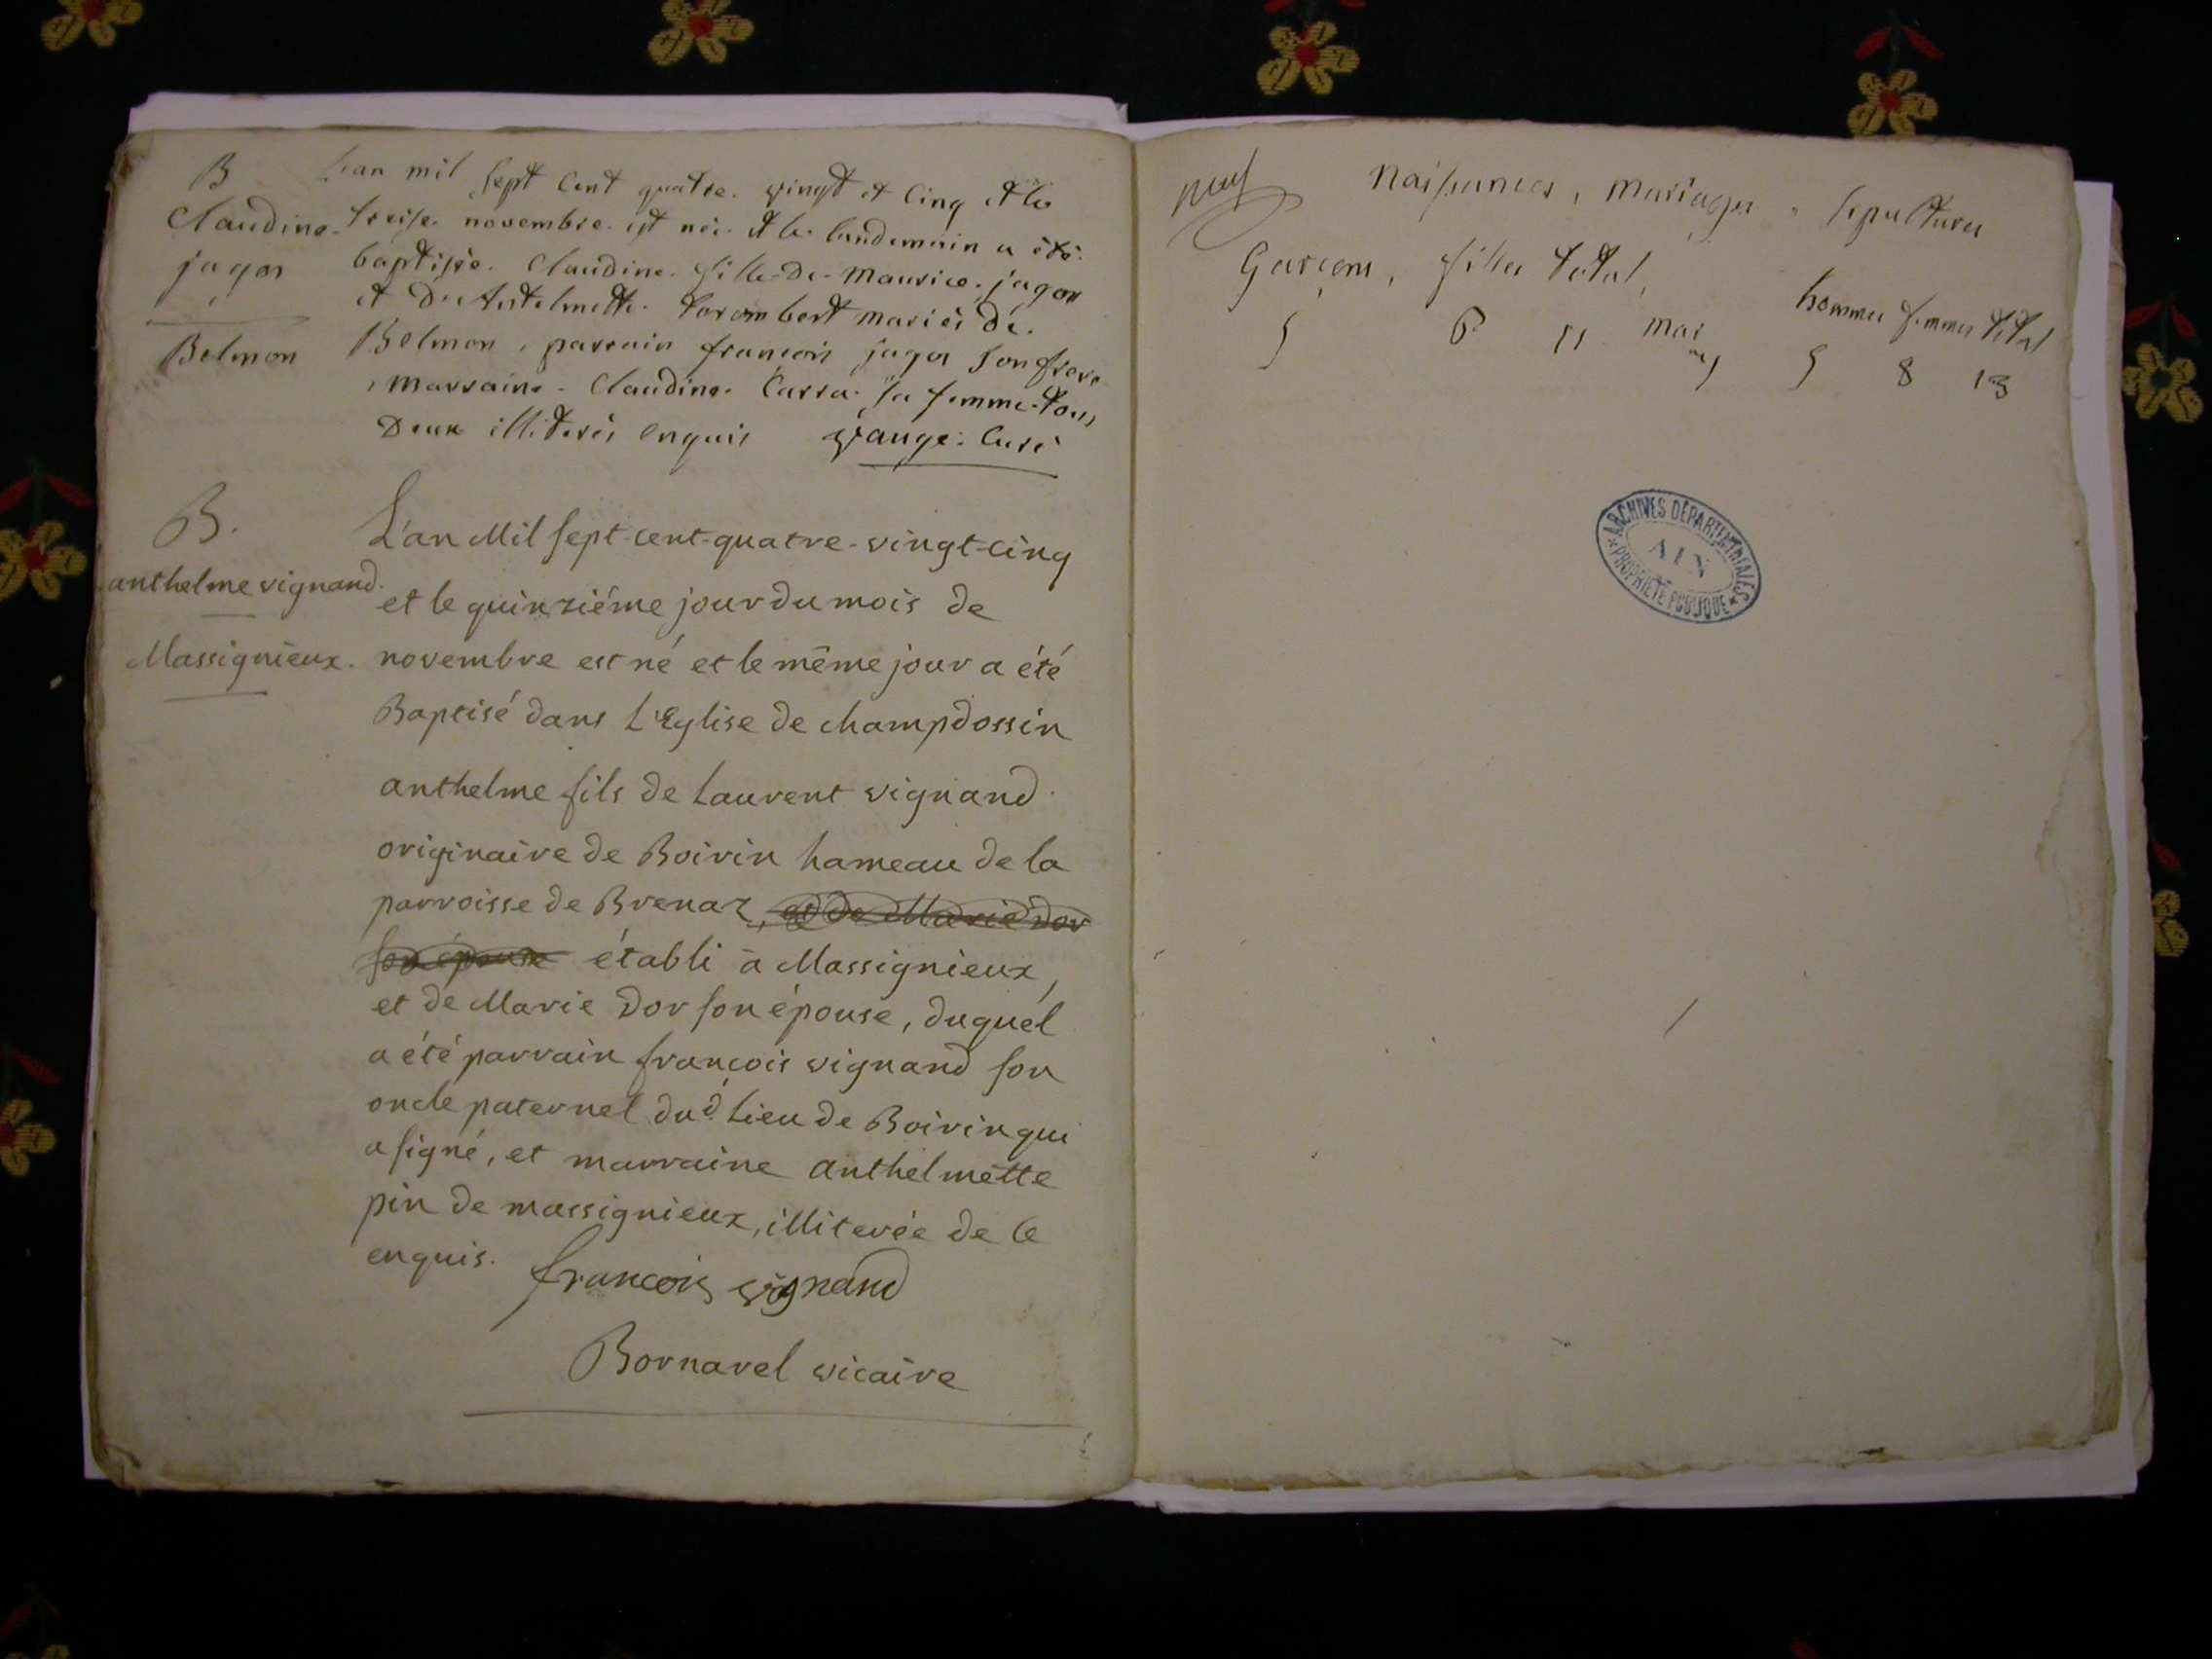 B
Claudine
jagon
Belmon
L'an mil sept cent quatre vingt et cinq et le
treise novembre est née et le lendemain a été
baptisée Claudine fille de Maurice jagon
et de Antelmette Corombert mariés de
Belmon, parrain françois jagon son frere
marraine Claudine Carra sa femme tous
Deux illiterés enquis vange Curé
B.
anthelme vignand
Massignieux.
L'an Mil sept-cent-quatre-vingt-cinq
et le quinziéme jour du mois de
novembre est né et le même jour a été
Baptisé dans L'Eglise de champdossin
anthelme fils de Laurent vignand
originaire de Boirin hameau de la
parroisse de Brenaz, et de Marie Dor
son épouse établi à Massignieux,
et de Marie Dor son épouse, duquel
a été parrain françois vignand son
oncle paternel dud. Lieu de Boirin qui
a signé, et marraine anthelmette
pin de massignieux, illiterée de ce
enquis. francois vignand
Bornarel vicaire
neuf
Naissances, mariages, sepultures
Garçons, filles total,
hommes femmes total
5 6 11 mar 5 8 13
ARCHIVES DÉPARTEMENTALES
AIN
PROPRIÉTÉ PUBLIQUE